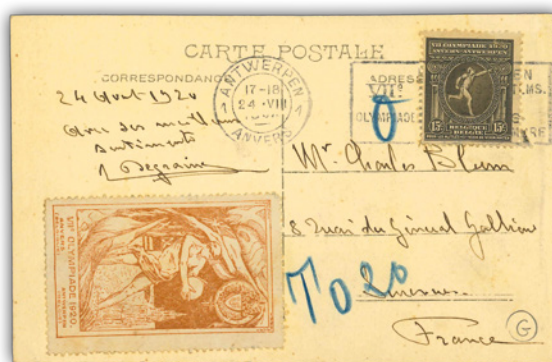 CARTE POSTALE
CORRESPONDANCE
ADRES
24 Août 1920
avec ses meilleurs
sentiments
ANTWERPEN
17-18
24 · VIII
ANVERS
1
VIIe
OLYMPIADE
VIIE OLYMPIADE 1920
ANVERS-ANTWERPEN
15c
BELGIQUE
BELGIË
15c
Mr Charles Blum
8 Quai du Général Gallieni
Suresnes
France
T 020
0
G
VIIE OLYMPIADE 1920.
ANVERS
ANTWERPEN